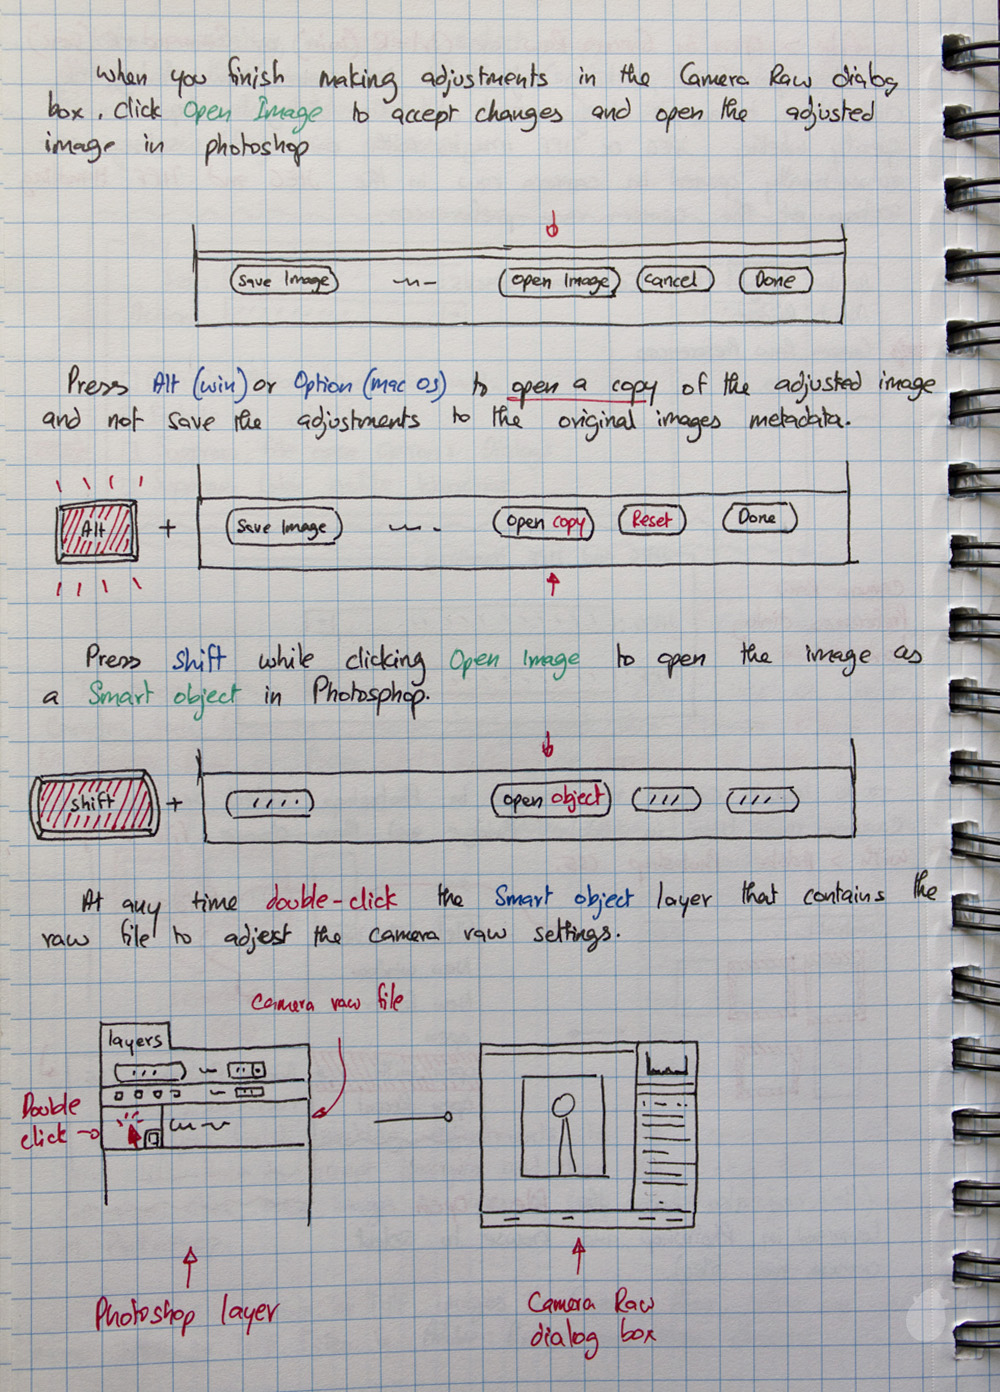 When you finish making adjustments in the Camera Raw dialog
box, click Open Image to accept changes and open the adjusted
image in photoshop
Save Image Open Image Cancel Done
Press Alt (win) or Option (mac os) to open a copy of the adjusted image
and not save the adjustments to the original images metadata.
Alt + Save Image Open copy Reset Done
Press shift while clicking Open Image to open the image as
a Smart object in Photosphop.
shift + open object
At any time double-click the Smart object layer that contains the
raw file to adjest the camera raw settings.
Camera raw file
layers
Double
click
Photoshop layer
Camera Raw
dialog box